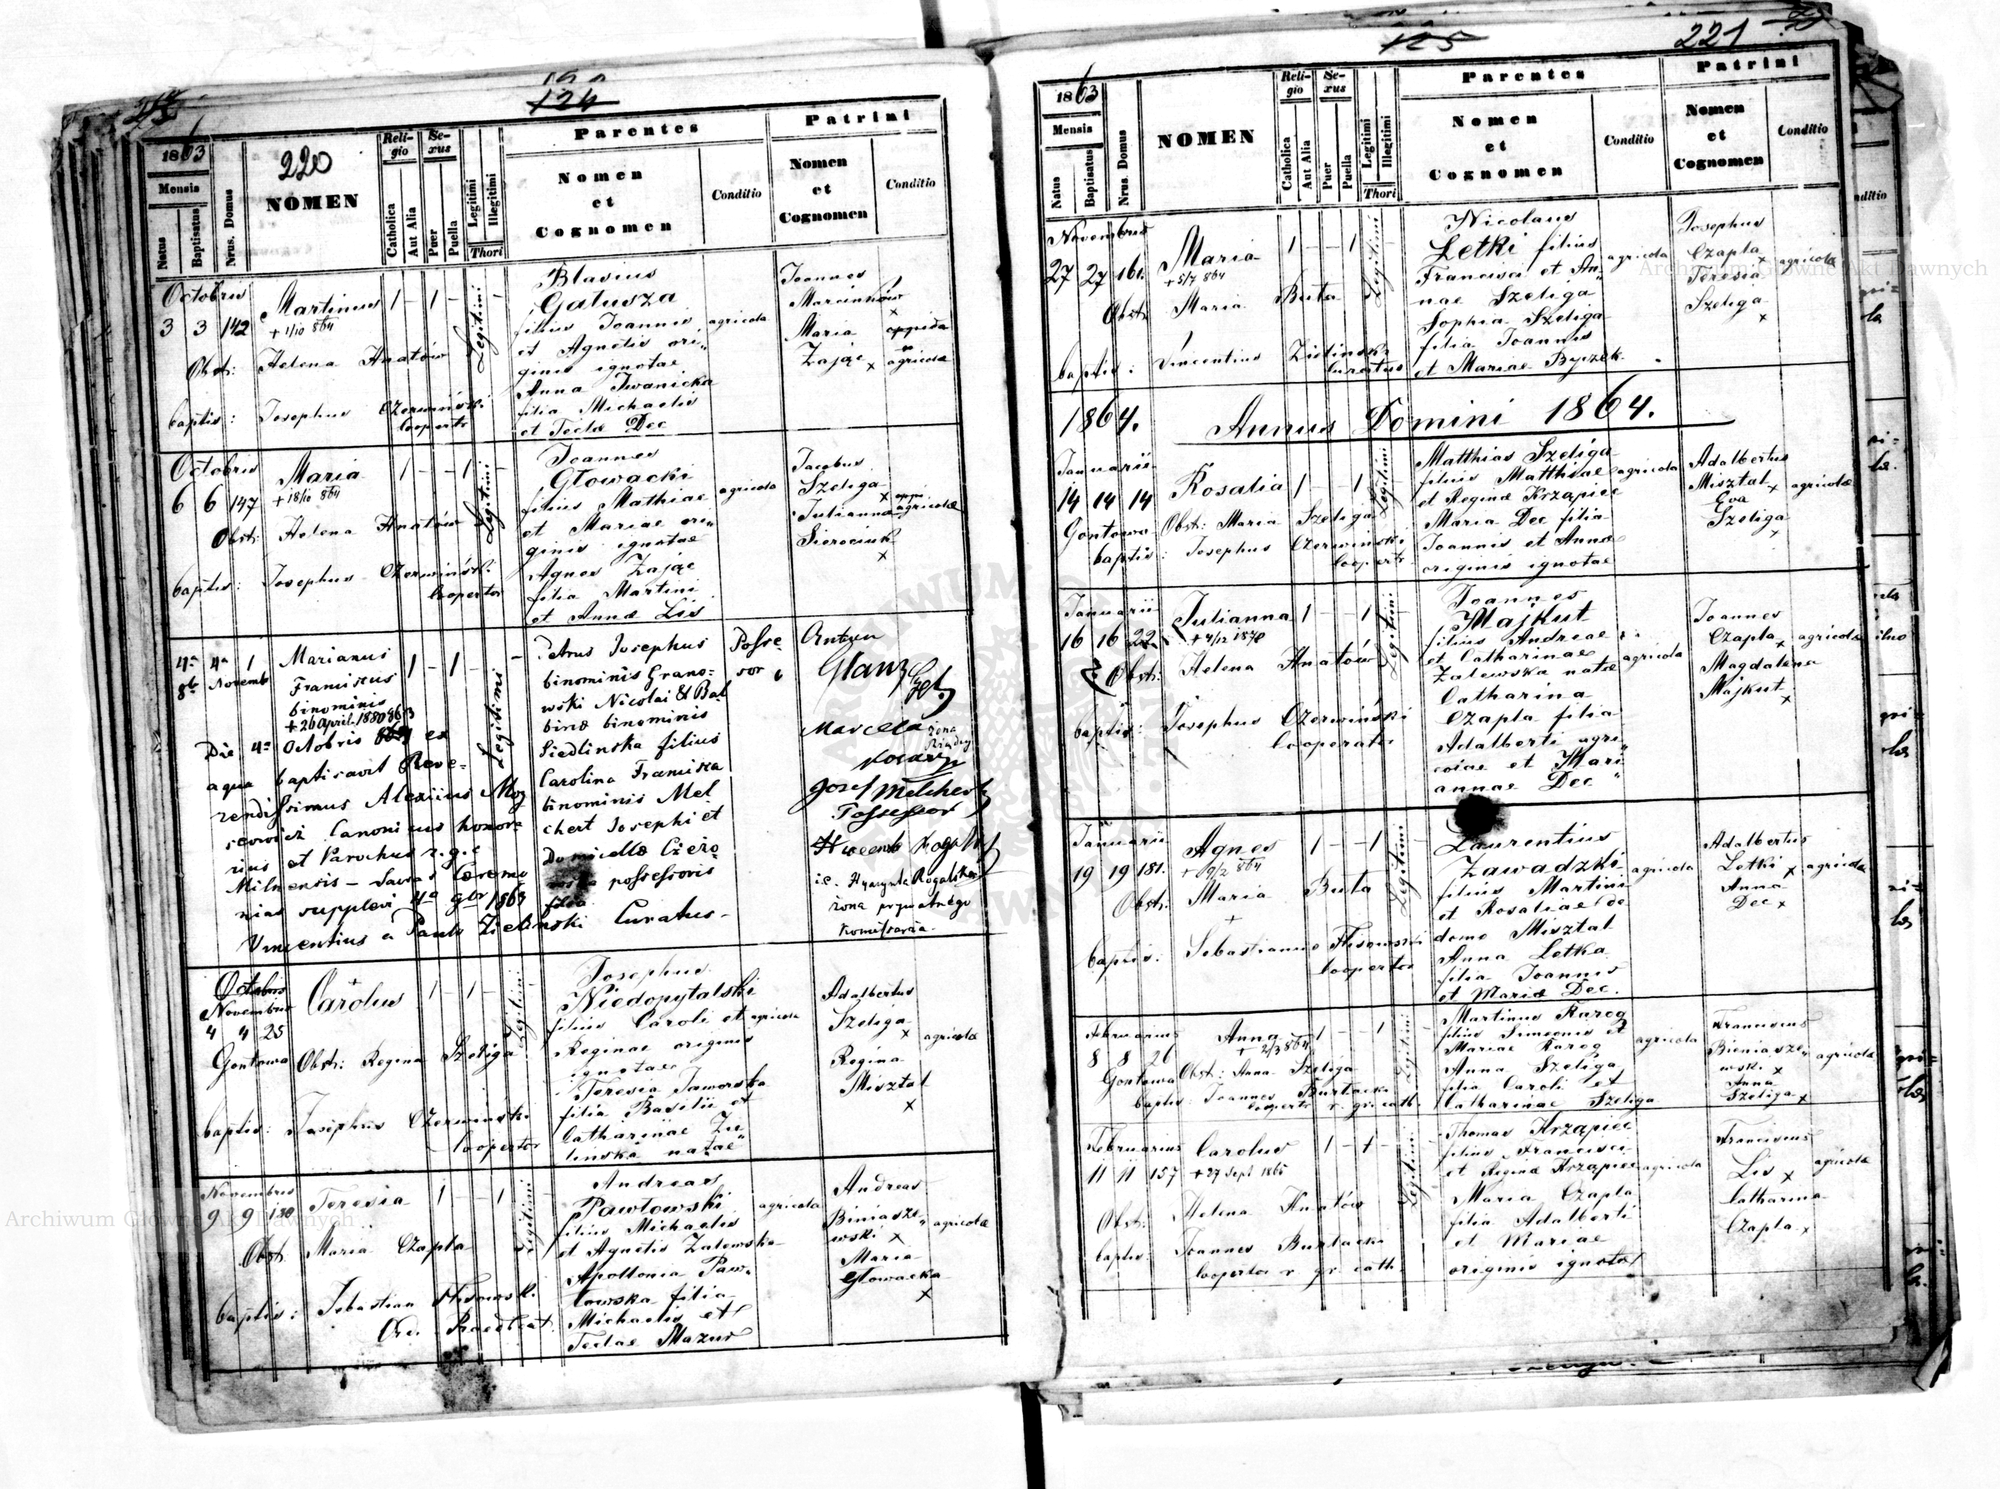 124
220
1863
Mensis
Natus
Baptisatus
Nrus. Domus
NOMEN
Religio
Catholica
Aut Alia
Sexus
Puer
Puella
Legitimi
Illegitimi
Thori
Parentes
Nomen
et
Cognomen
Conditio
Patrini
Nomen
et
Cognomen
Conditio
Octobris
3 3 142
Martinus
+ 1/10 864
1 - 1 -
Legitimi
Obst: Helena Hnatów
baptis: Josephus Czerwiński
Cooperator
Blasius
Gałusza
filius Joannis
et Agnetis ori„
ginis ignotae
Anna Iwanicka
filia Michaelis
et Teclæ Dec
agricola
Joannes
Marcinków
x
Maria
Zając x
agricolæ
Octobris
6 6 147
Maria
+ 18/10 864
1 - - 1
Legitimi
Obst: Helena Hnatów
baptis: Josephus Czerwiński
Cooperator
Joannes
Głowacki
filius Mathiae
et Mariae ori„
ginis ignotae
Agnes Zając
filia Martini
et Annæ Lis
agricola
Jacobus
Szeliga
x
Julianna
Sierociuk
x
agricolæ
4a 4a 1
8b Novemb
Marianus
Franciscus
binominis
+ 26 April. 1880
1 - 1 -
Legitimi
Die 4a Octobris ex
aqua baptisavit Reve-
rendissimus Alexius Moy
Canonicus honora
rius et Parochus r.g.c
Milnensis - Sacras Cæremo
nias supplevi 4a 9br 1863
Vincentius a Paulo Zieliński Curatus
Petrus Josephus
binominis Grano-
wski Nicolai et Bal
binæ binominis
Siedlinska filius
Carolina Francisca
binominis Mel
chert Josephi et
Domicellæ
possessoris
filia
Posse-
sor
Antoni
Glanz
Marcella żona
Józef Melchert
Possessor
i.e. Hyacynta Rogalska
żona prywatnego
Komissarza
Octobris
Novembris
4 4 25
Gontowa
Carolus
1 - 1 -
Legitimi
Obst: Regina Szeliga
baptis: Josephus Czerwiński
Cooperator
Josephus
Niedopytalski
filius Caroli et
Reginae originis
ignotae
Teresia Jaworska
filia Basilii et
Catharinae Zie
linska natae
agricola
Adalbertus
Szeliga
x
Regina
Misztal
x
agricolæ
Novembris
9 9 130
Teresia
1 - - 1
Legitimi
Obst. Maria Czapla
baptis: Sebastian
Ord. Praedicat.
Andreas
Pawłowski
filius Michaelis
et Agnetis Zalewska
Apollonia Paw„
łowska filia
Michaelis et
Teclae Mazur
agricola
Andreas
Biniasze„
wski x
Maria
Głowacka
x
agricolæ
125
221
1863
Mensis
Natus
Baptisatus
Nrus. Domus
NOMEN
Religio
Catholica
Aut Alia
Sexus
Puer
Puella
Legitimi
Illegitimi
Thori
Parentes
Nomen
et
Cognomen
Conditio
Patrini
Nomen
et
Cognomen
Conditio
Novembris
27 27 161
Maria
+ 5/7 864
1 - - 1
Legitimi
Obst: Maria Buta
baptis: Vincentius Zieliński
Curatus
Nicolaus
Letki filius
Francisci et An„
nae Szeliga
Sophia Szeliga
filia Joannis
et Mariae Byczek
agricola
Josephus
Czapla x
Teresia
Szeliga
x
agricolæ
1864. Annus Domini 1864.
Januarii
14 14 14
Gontowa
Rosalia
1 - - 1
Legitimi
Obst: Maria Szeliga
baptis: Josephus Czerwiński
Cooperator
Matthias Szeliga
filius Matthiae
et Reginæ Krzapiec
Maria Dec filia
Joannis et Annæ
originis ignotae
agricola
Adalbertus
Misztal x
Eva
Szeliga
x
agricolæ
Januarii
16 16 22
Julianna
+ 4/12 1870
1 - - 1
Legitimi
Obst: Helena Hnatów
baptis: Josephus Czerwiński
Cooperator
Joannes
Majkut
filius Andreae
et Catharinae
Zalewska natæ
Catharina
Czapla filia
Adalberti agri„
colae et Mari„
annae Dec
agricola
Joannes
Czapla x
Magdalena
Majkut
x
agricolæ
Januarii
19 19 181.
Agnes
+ 9/2 864
1 - - 1
Legitimi
Obst: Maria Buta
+
baptis: Sebastianus
Cooperator
Laurentius
Zawadzki
filius Martini
et Rosaliae de
domo Misztal
Anna Letka
filia Joannis
et Mariæ Dec.
agricola
Adalbertus
Letki x
Anna
Dec x
agricolæ
Februarius
8 8 26
Gontowa
Anna
+ 2/3 864
1 - - 1
Legitimi
Obst: Anna Szeliga
baptis: Joannes Burlacki
Cooperator r. gr. cath.
Martinus Karog
filius Simeonis et
Mariae Karog
Anna Szeliga
filia Caroli et
Catharinae Szeliga
agricola
Franciscus
Bieniasze„
wski x
Anna
Szeliga x
agricolæ
Februarius
11 11 157
Carolus
+ 27 Sept 1865
1 - 1 -
Legitimi
Obst: Helena Hnatów
baptis: Joannes Burlacki
Cooperator r. gr. cath.
Thomas Krzapiec
filius Francisci
et Reginæ Krzapiec
Maria Czapla
filia Adalberti
et Mariae
originis ignotæ
agricola
Franciscus
Lis x
Catharina
Czapla x
agricolæ
Archiwum Główne Akt Dawnych
Archiwum Główne Akt Dawnych